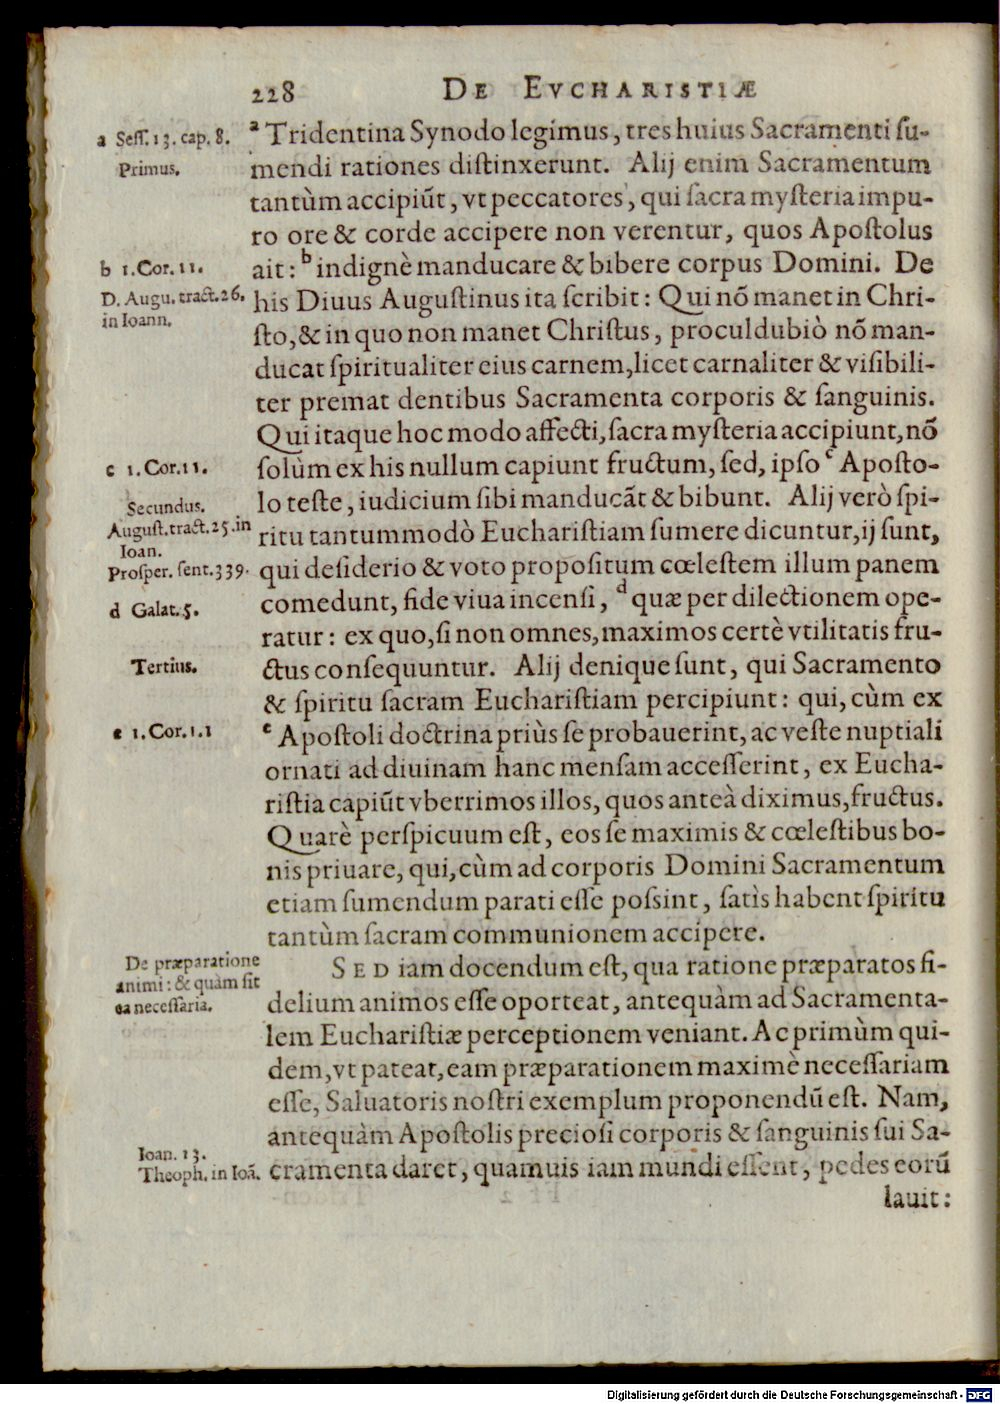 228 DE EVCHARISTIÆ
a Seſſ. 13. cap. 8.
Primus.
ᵃ Tridentina Synodo legimus, tres huius Sacramenti ſu-
mendi rationes diſtinxerunt. Alij enim Sacramentum
tantùm accipiūt, vt peccatores, qui ſacra myſteria impu-
ro ore & corde accipere non verentur, quos Apoſtolus
b 1. Cor. 11.
ait: ᵇ indignè manducare & bibere corpus Domini. De
D. Augu. tract. 26.
in Ioann.
his Diuus Auguſtinus ita ſcribit: Qui nõ manet in Chri-
ſto, & in quo non manet Chriſtus, proculdubiò nõ man-
ducat ſpiritualiter eius carnem, licet carnaliter & viſibili-
ter premat dentibus Sacramenta corporis & ſanguinis.
Qui itaque hoc modo affecti, ſacra myſteria accipiunt, nõ
c 1. Cor. 11.
ſolùm ex his nullum capiunt fructum, ſed, ipſo ᶜ Apoſto-
lo teſte, iudicium ſibi manducãt & bibunt. Alij verò ſpi-
Secundus.
Auguſt. tract. 25. in
Ioan.
Proſper. ſent. 339.
ritu tantummodò Euchariſtiam ſumere dicuntur, ij ſunt,
qui deſiderio & voto propoſitum cœleſtem illum panem
d Galat. 5.
comedunt, fide viua incenſi, ᵈ quæ per dilectionem ope-
ratur: ex quo, ſi non omnes, maximos certè vtilitatis fru-
Tertius.
ctus conſequuntur. Alij denique ſunt, qui Sacramento
& ſpiritu ſacram Euchariſtiam percipiunt: qui, cùm ex
e 1. Cor. 1.1
ᵉ Apoſtoli doctrina priùs ſe probauerint, ac veſte nuptiali
ornati ad diuinam hanc menſam acceſſerint, ex Eucha-
riſtia capiūt vberrimos illos, quos anteà diximus, fructus.
Quarè perſpicuum eſt, eos ſe maximis & cœleſtibus bo-
nis priuare, qui, cùm ad corporis Domini Sacramentum
etiam ſumendum parati eſſe poſsint, ſatìs habent ſpiritu
tantùm ſacram communionem accipere.
De præparatione
animi: & quàm ſit
ea neceſſaria.
SED iam docendum eſt, qua ratione præparatos fi-
delium animos eſſe oporteat, antequàm ad Sacramenta-
lem Euchariſtiæ perceptionem veniant. Ac primùm qui-
dem, vt pateat, eam præparationem maximè neceſſariam
eſſe, Saluatoris noſtri exemplum proponendū eſt. Nam,
antequàm Apoſtolis precioſi corporis & ſanguinis ſui Sa-
Ioan. 13.
Theoph. in Ioã.
cramenta daret, quamuis iam mundi eſſent, pedes eorū
lauit:
Digitalisierung gefördert durch die Deutsche Forschungsgemeinschaft - DFG